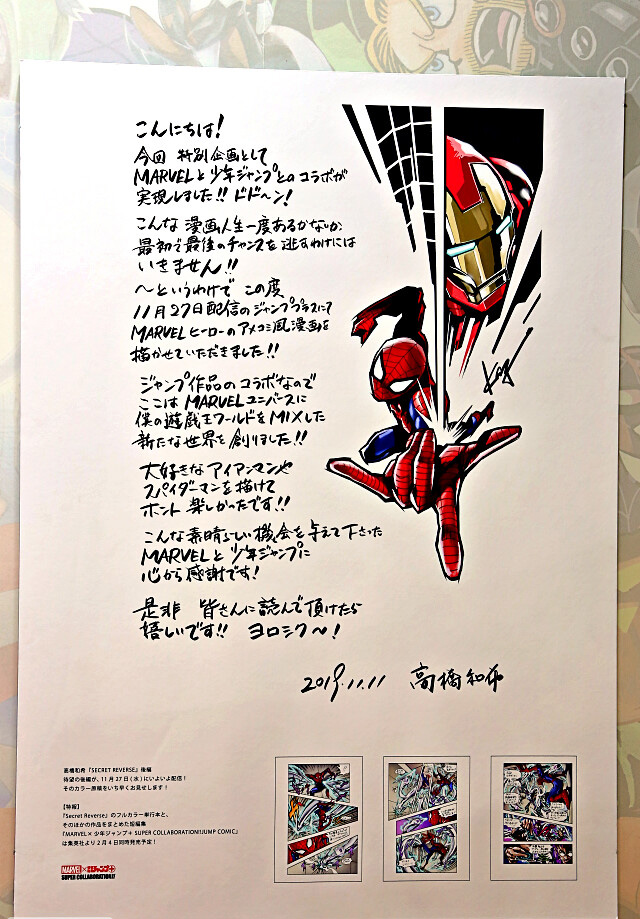 こんにちは!
今回 特別企画として
MARVELと少年ジャンプとのコラボが
実現しました!! ドド〜ン!
こんな漫画人生一度あるかないか
最初で最後のチャンスを逃すわけには
いきません!!
〜というわけで この度
11月27日配信のジャンププラスにて
MARVELヒーローのアメコミ風漫画を
描かせていただきました!!
ジャンプ作品のコラボなので
ここはMARVELユニバースに
僕の遊戯王ワールドをMIXした
新たな世界を創りました!!
大好きなアイアンマンや
スパイダーマンを描けて
ホント楽しかったです!!
こんな素晴らしい機会を与えて下さった
MARVELと少年ジャンプに
心から感謝です!
是非 皆さんに読んで頂けたら
嬉しいです!! ヨロシク〜!
2019.11.11 高橋和希
高橋和希『SECRET REVERSE』後編
待望の後編が、11月27日(水)にいよいよ配信!
そのカラー原稿をいち早くお見せします!
【特報】
『Secret Reverse』のフルカラー単行本と、
そのほかの作品をまとめた短編集
『MARVEL×少年ジャンプ+ SUPER COLLABORATION!(JUMP COMIC』
は集英社より2月4日同時発売予定!
MARVEL×少年ジャンプ+
SUPER COLLABORATION!!